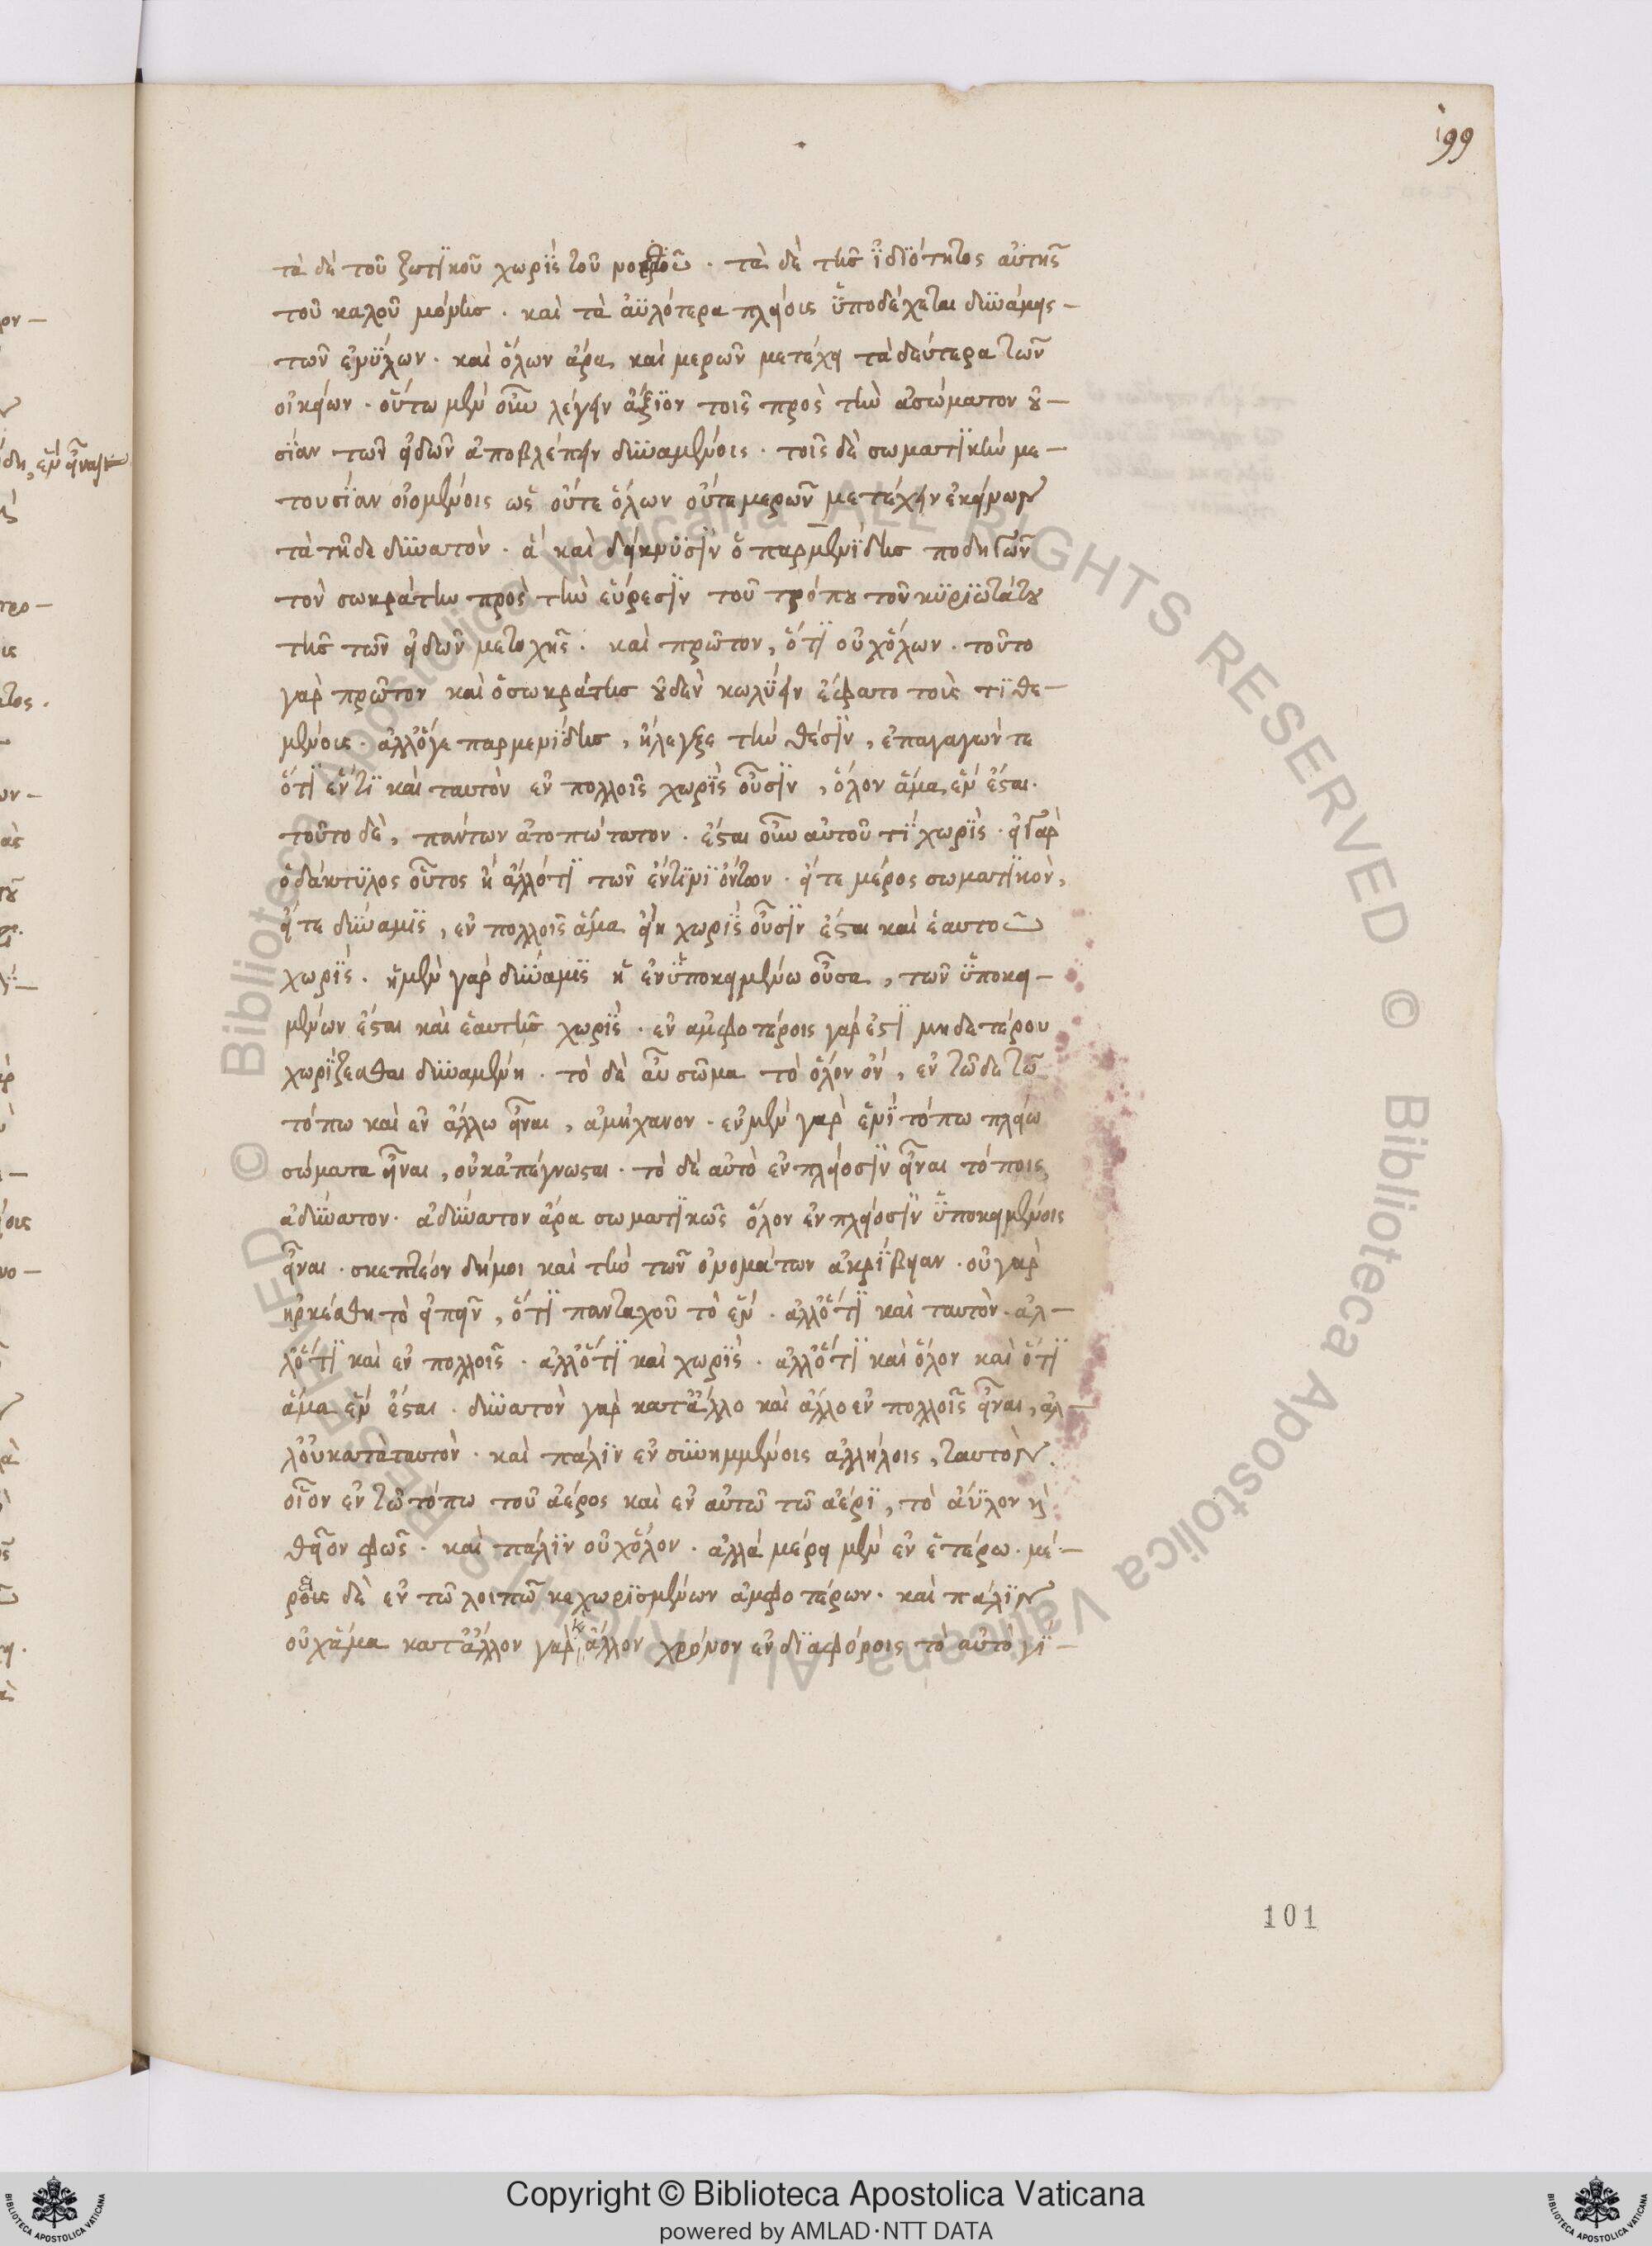 199
τὰ δὲ τοῦ ζωτϊκοῦ χωρὶς τοῦ νοεροῦ · τὰ δὲ τῆς ἰδϊότητος αὐτῆς
τοῦ καλοῦ μόνης · καὶ τὰ ἀϋλότερα πλείοις ὑποδέχεται δυνάμεις –
τῶν ἐνύλων · καὶ ὅλων ἄρα καὶ μερῶν μετέχει τὰ δεύτερα τῶν
οἰκείων · οὕτω μὲν οὖν λέγειν ἄξϊον τοῖς πρὸς τὴν ἀσώματον οὐ –
σίαν τῶν εἰδῶν ἀποβλέπειν δυναμένοις · τοῖς δὲ σωματϊκὴν με –
τουσίαν οἰομένοις ὡς οὔτε ὅλων οὔτε μερῶν μετέχειν ἐκείνων
τὰ τῆδε δυνατόν · ἃ καὶ δείκνυσϊν ὁ παρμενίδης ποδηγῶν
τὸν σωκράτην πρὸς τὴν εὕρεσϊν τοῦ τρόπου τοῦ κυρϊωτάτου
τῆς τῶν εἰδῶν μετοχῆς · καὶ πρῶτον, ὅτϊ οὐχ ὅλων · τοῦτο
γὰρ πρῶτον καὶ ὁ σωκράτης οὐδὲν κωλύειν ἔφατο τοῖς τϊθε –
μένοις · ἀλλ' ὅγε παρμενίδης, ἤλεγξε τὴν θέσϊν, ἐπαγαγών τε
ὅτϊ ἕν τϊ καὶ ταυτὸν ἐν πολλοῖς χωρὶς οὖσϊν, ὅλον ἅμα ἓν ἔσται ·
τοῦτο δὲ, πάντων ἀτοπώτατον · ἔσται οὖν αὐτοῦ τϊ χωρὶς · εἰ γὰρ
ὁ δάκτυλος οὗτος ἢ ἄλλό τϊ τῶν ἔν τϊνϊ ὄντων · εἴτε μέρος σωματϊκὸν,
εἴτε δύναμϊς, ἐν πολλοῖς ἅμα εἴη χωρὶς οὖσϊν ἔσται καὶ ἑαυτοῦ
χωρίς · ἡ μὲν γὰρ δύναμϊς ἡ ἐν ὑποκειμένω οὖσα, τῶν ὑποκει –
μένων ἔσται καὶ ἑαυτῆς χωρὶς · ἐν ἀμφοτέροις γάρ ἐστϊ μηδετέρου
χωρίζεσθαι δυναμένη · τὸ δὲ αὖ σῶμα τὸ ὅλον ὂν, ἐν τῶδε τῶ
τόπω καὶ ἐν ἄλλω εἶναι, ἀμήχανον · ἐν μὲν γὰρ ἑνὶ τόπω πλείω
σώματα εἶναι, οὐκ ἀπέγνωσται · τὸ δὲ αὐτὸ ἐν πλείοσϊν εἶναι τόποις
ἀδύνατον · ἀδύνατον ἄρα σωματϊκῶς ὅλον ἐν πλείοσϊν ὑποκειμένοις
εἶναι · σκεπτέον δή μοι καὶ τὴν τῶν ὀνομάτων ἀκρίβειαν · οὐ γὰρ
ἠρκέσθη τὸ εἰπεῖν, ὅτϊ πανταχοῦ τὸ ἕν · ἀλλ' ὅτϊ καὶ ταυτὸν · ἀλ –
λ' ὅτϊ καὶ ἐν πολλοῖς · ἀλλ' ὅτϊ καὶ χωρὶς · ἀλλ' ὅτϊ καὶ ὅλον καὶ ὅτϊ
ἅμα ἓν ἔσται · δυνατὸν γὰρ κατ' ἄλλο καὶ ἄλλο ἐν πολλοῖς εἶναι, ἀλ –
λ' οὐ κατὰ ταυτὸν · καὶ πάλϊν ἐν συνημμένοις ἀλλήλοις, ταυτὸν ·
οἷον ἐν τῶ τόπω τοῦ ἀέρος καὶ ἐν αὐτῶ τῶ ἀέρϊ, τὸ ἄϋλον καὶ
θεῖον φῶς · καὶ πάλϊν οὐχ ὅλον · ἀλλὰ μέρει μὲν ἐν ἑτέρω · μέ –
ρει δὲ ἐν τῶ λοιπῶ κεχωρϊσμένων ἀμφοτέρων · καὶ πάλϊν
οὐχ ἅμα κατ' ἄλλον γὰρ καὶ ἄλλον χρόνον ἐν δϊαφόροις τὸ αὐτὸ γί –
101
Copyright © Biblioteca Apostolica Vaticana
powered by AMLAD·NTT DATA